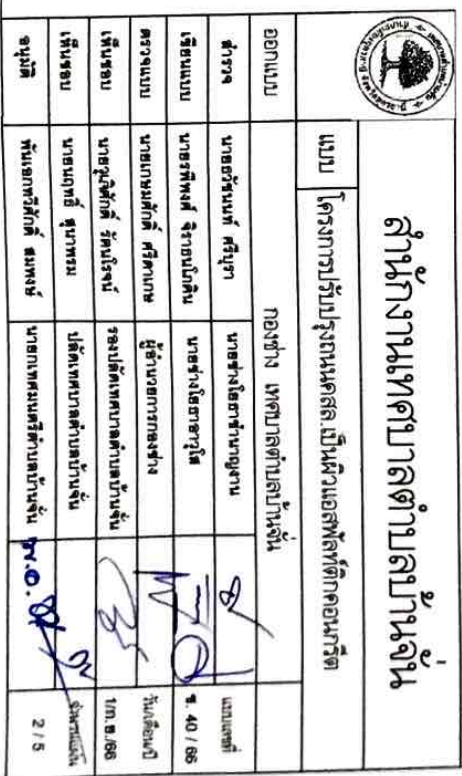 สำนักงานเทศบาลตำบลบ้านจั่น
แบบ โครงการปรับปรุงถนนคสล.เป็นผิวแอสฟัลท์ติกคอนกรีต
ออกแบบ กองช่าง เทศบาลตำบลบ้านจั่น
สำรวจ นายธวัชนนท์ ศรีบุรา นายช่างโยธาชำนาญงาน แบบเลขที่
เขียนแบบ นายรพีพงศ์ จิราธนโภคิน นายช่างโยธาอาวุโส ช. 40 / 66
ตรวจแบบ นายเกษมศักดิ์ ศรีดาเกษ ผู้อำนวยการกองช่าง วัน/เดือน/ปี
เห็นชอบ นายวุฒิศักดิ์ รัตนโรจน์ รองปลัดเทศบาลตำบลบ้านจั่น 1/ก.ย./66
เห็นชอบ นายนฤทธิ์ สุนาพรม ปลัดเทศบาลตำบลบ้านจั่น จำนวนแผ่น
อนุมัติ พันเอกทวีศักดิ์ สมพงษ์ นายกเทศมนตรีตำบลบ้านจั่น พ.อ. 2 / 5